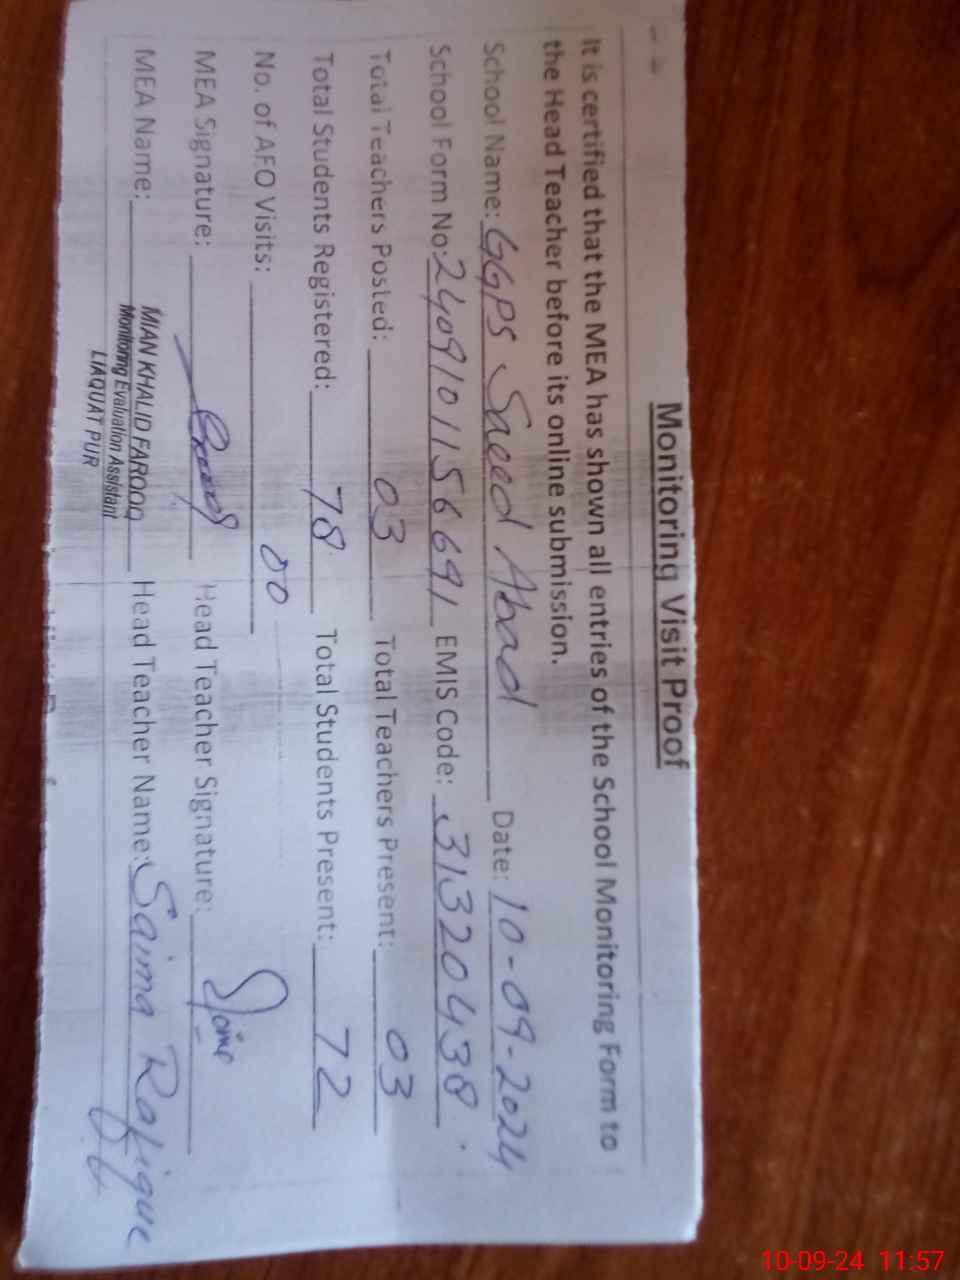 Monitoring Visit Proof
It is certified that the MEA has shown all entries of the School Monitoring Form to
the Head Teacher before its online submission.
School Name: GGPS Saeed Abad Date: 10-09-2024
School Form No: 2409101156691 EMIS Code: 31320438
Total Teachers Posted: 03 Total Teachers Present: 03
Total Students Registered: 78 Total Students Present: 72
No. of AEO Visits: 00
MEA Signature: Head Teacher Signature: Saima
MEA Name: MIAN KHALID FAROOQ Head Teacher Name: Saima Rafique
Monitoring Evaluation Assistant
LIAQUAT PUR
10-09-24 11:57